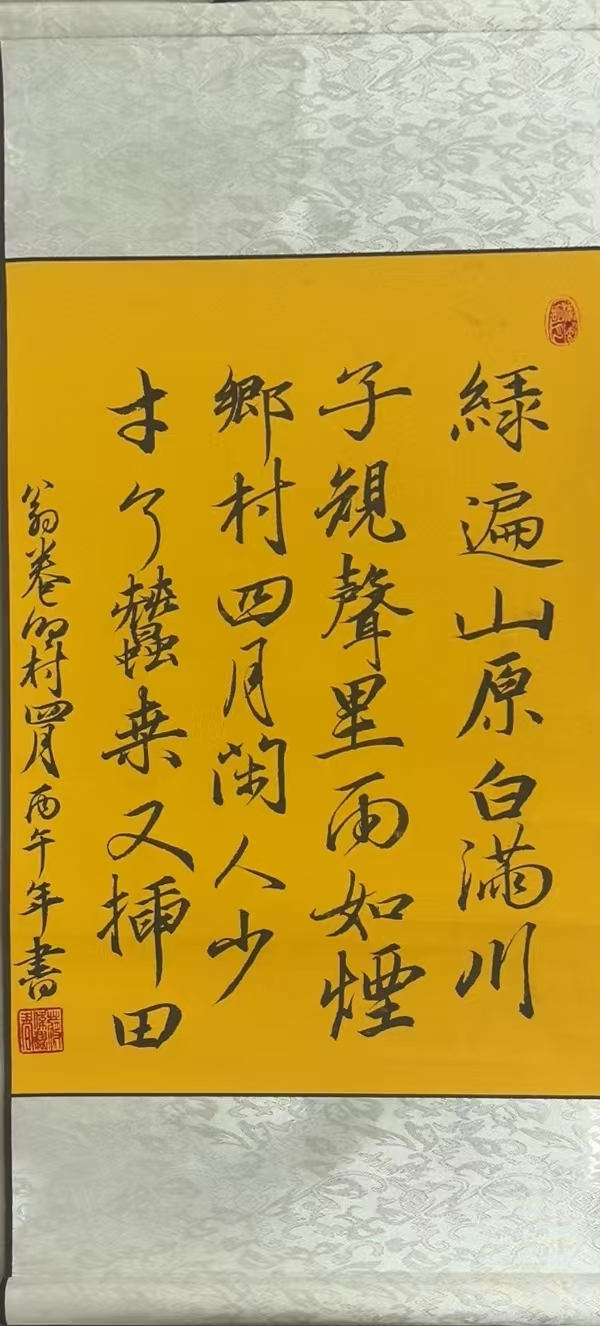 綠遍山原白滿川
子規聲里雨如煙
鄉村四月閑人少
才了蠶桒又插田
翁卷鄉村四月丙午年書